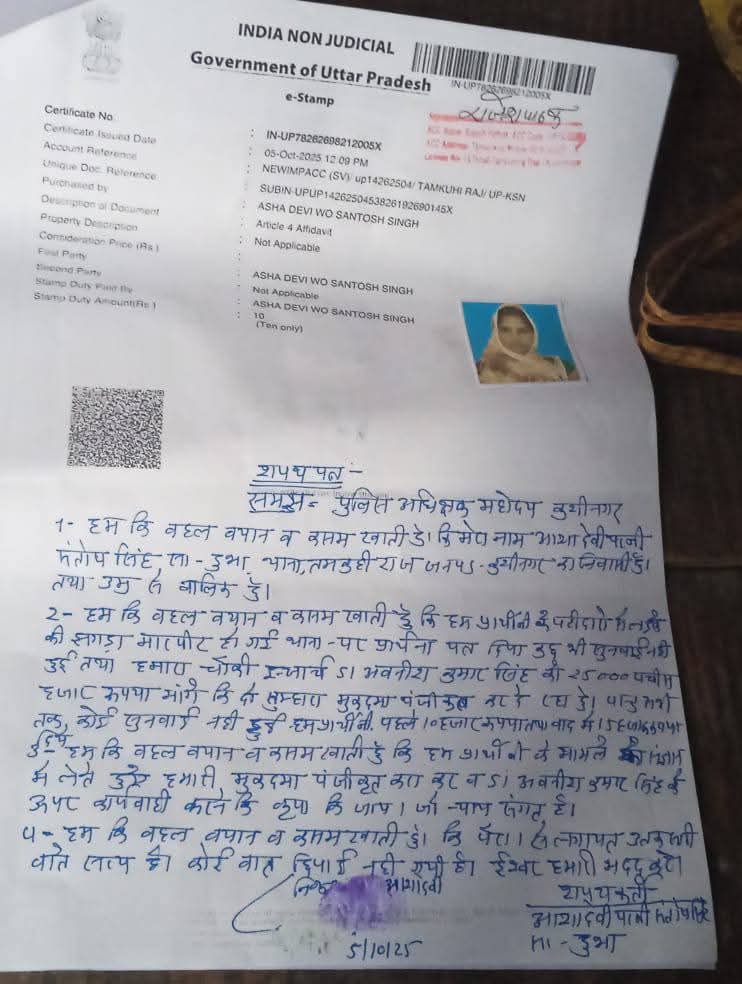 INDIA NON JUDICIAL
Government of Uttar Pradesh
e-Stamp
IN-UP78262698212005X
Certificate No. : IN-UP78262698212005X
Certificate Issued Date : 05-Oct-2025 12:09 PM
Account Reference : NEWIMPACC (SV)/ up14262504/ TAMKUHI RAJ/ UP-KSN
Unique Doc. Reference : SUBIN-UPUP1426250453826192690145X
Purchased by : ASHA DEVI WO SANTOSH SINGH
Description of Document : Article 4 Affidavit
Property Description : Not Applicable
Consideration Price (Rs.) :
First Party : ASHA DEVI WO SANTOSH SINGH
Second Party : Not Applicable
Stamp Duty Paid By : ASHA DEVI WO SANTOSH SINGH
Stamp Duty Amount(Rs.) : 10
(Ten only)
शपथ पत्र :-
समक्ष = पुलिस अधिक्षक महोदय कुशीनगर
1- हम कि वहल वयान व कसम खाती है। कि मेरा नाम आशा देवी पत्नी
संतोष सिंह, सा - डुभा, थाना, तमकुही राज जनपद - कुशीनगर का निवासी हूँ।
तथा उम्र से बालिक हूँ।
2- हम कि वहल वयान व कसम खाती हूँ कि हम प्रार्थीनी के पटीदारो
की झगड़ा मारपीट हो गई थाना - पर प्रार्थना पत्र दिया सुनवाई नही
हुई तथा हमारा चौकी इन्चार्ज S। अवनीश कुमार सिंह को 25000 पचीस
हजार रूपया मांगे कि तुम्हारा मुकदमा पंजीकृत कर दे
तक, कोई सुनवाई नही हुई हम प्रार्थीनी पहले 10 हजार रूपया तथा वाद मे 15 हजार रूपया
दिये
हम कि वहल वयान व कसम खाती हूँ कि हम प्रार्थीनी के मामले
मे लेते हुऐ हमारी मुकदमा पंजीकृत करा कर व S। अवनीश कुमार सिंह के
ऊपर कार्यवाही करने कि कृपा कि जाय। जो न्याय संगत है।
4- हम कि वहल वयान व कसम खाती है। कि पैरा 1 से लगायत सभी
वाते सत्य है। कोई वात छिपाई नही गयी है। ईश्वर हमारी मदद करे।
आशादेवी
शपथकर्ती
आशा देवी पत्नी संतोष सिंह
सा - डुभा
5/10/25